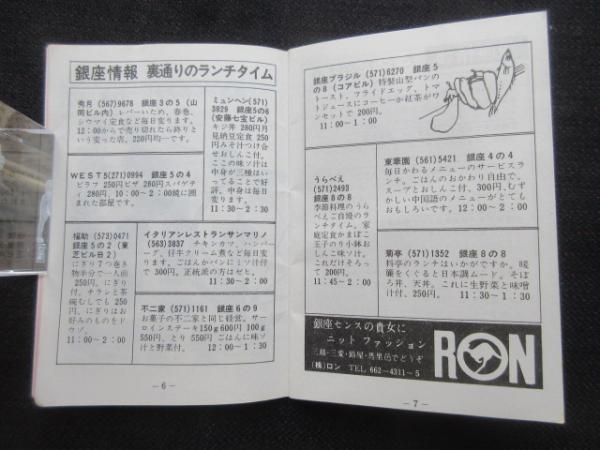 銀座情報 裏通りのランチタイム
秀月 (567)9678 銀座3の5 (山
岡ビル内) レバーいため、春巻、
シウマイ定食など毎日変ります。
12:00からで売り切れたら終りと
いう変った店。220円均一です。
WEST5(571)0994 銀座5の4
ピラフ 250円ピザ 280円スパゲテ
ィ 280円。10:00〜2:00 鏡に囲
まれた部屋です。
福助 (573)0471
銀座5の2 (東
芝ビルB2)
にぎり7つ巻き
物半分で一人前
250円。にぎり
付。チラシと茶
碗むしでも 250
円。にぎりはお
好みのものをド
ウゾ。
11:00〜2:00
ミュンヘン(571)
3929 銀座5の6
(安藤七宝ビル)
キジ丼 280円月
見納豆定食 250
円みそ汁つけ合
せおしんこ付。
ここの味ソ汁は
中身が三種はい
ってることで好
評。中身は毎日
変わります。
11:30〜2:30
イタリアンレストランサンマリノ
(563)3837 チキンカツ、ハンバー
ーグ、仔牛クリーム煮など毎日変
ります。ごはんかパンにミソ汁付
で 300円。正統派の方はぜひ。
11:30〜1:30
不二家 (571)1161 銀座6の9
お菓子の不二家と同じ経営。サー
ロインステーキ150g600円 100g
550円、とり 550円 ごはんに味ソ
汁と野菜付。 12:00〜1:30
−6−
銀座ブラジル (571)6270 銀座5
の8 (コアビル) 特製山型パンの
トースト、フライドエッグ、トマ
トジュースにコーヒーか紅茶がワ
ンセットで 200円。
11:00〜1:00
うらべえ
(571)2493
銀座8の8
季節料理のうら
べえご自慢のラ
ンチタイム。家
庭定食かまぼこ
玉子のり小鉢お
しんこ味ソ汁。
これだけそろっ
て 200円。
11:45〜2:00
東華園 (561)5421 銀座4の4
毎日かわるメニューのサービスラ
ンチ。ごはんのおかわり自由で、ス
ープとおしんこ付、300円、むずか
しい中国語のメニューがとても
おもしろいです。 12:00〜2:00
菊亭 (571)1352 銀座8の8
料亭のランチはいかがですか。暖
簾をくぐると日本調ムード。そぼ
ろ丼、天丼。これに生野菜と味噌
汁付、250円。 11:30〜1:30
銀座センスの貴女に
ニット ファッション
三越・三愛・鈴屋・馬里邑でどうぞ
(株)ロン TEL 662−4311〜5
RON
−7−